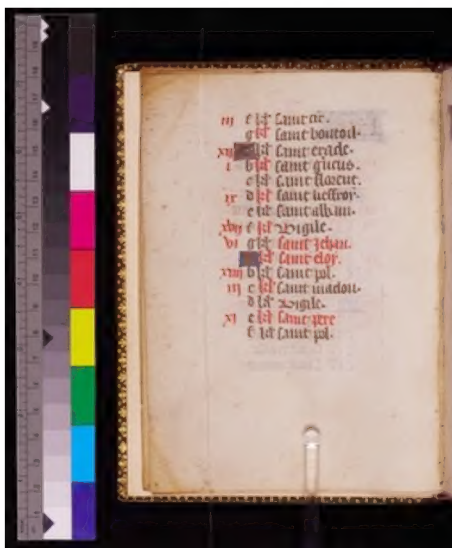 iii f kl saint cir.
g kl saint boutou.
kl saint erade.
i b kl saint queus.
c kl saint florent.
ix d kl saint lieffroy.
e kl saint albin.
xvii f kl Vigile.
vi g kl saint Jehan.
kl saint eloy.
xiiii b kl saint pol.
iii c kl saint madou.
d kl Vigile.
xi e kl saint pere
f kl saint pol.